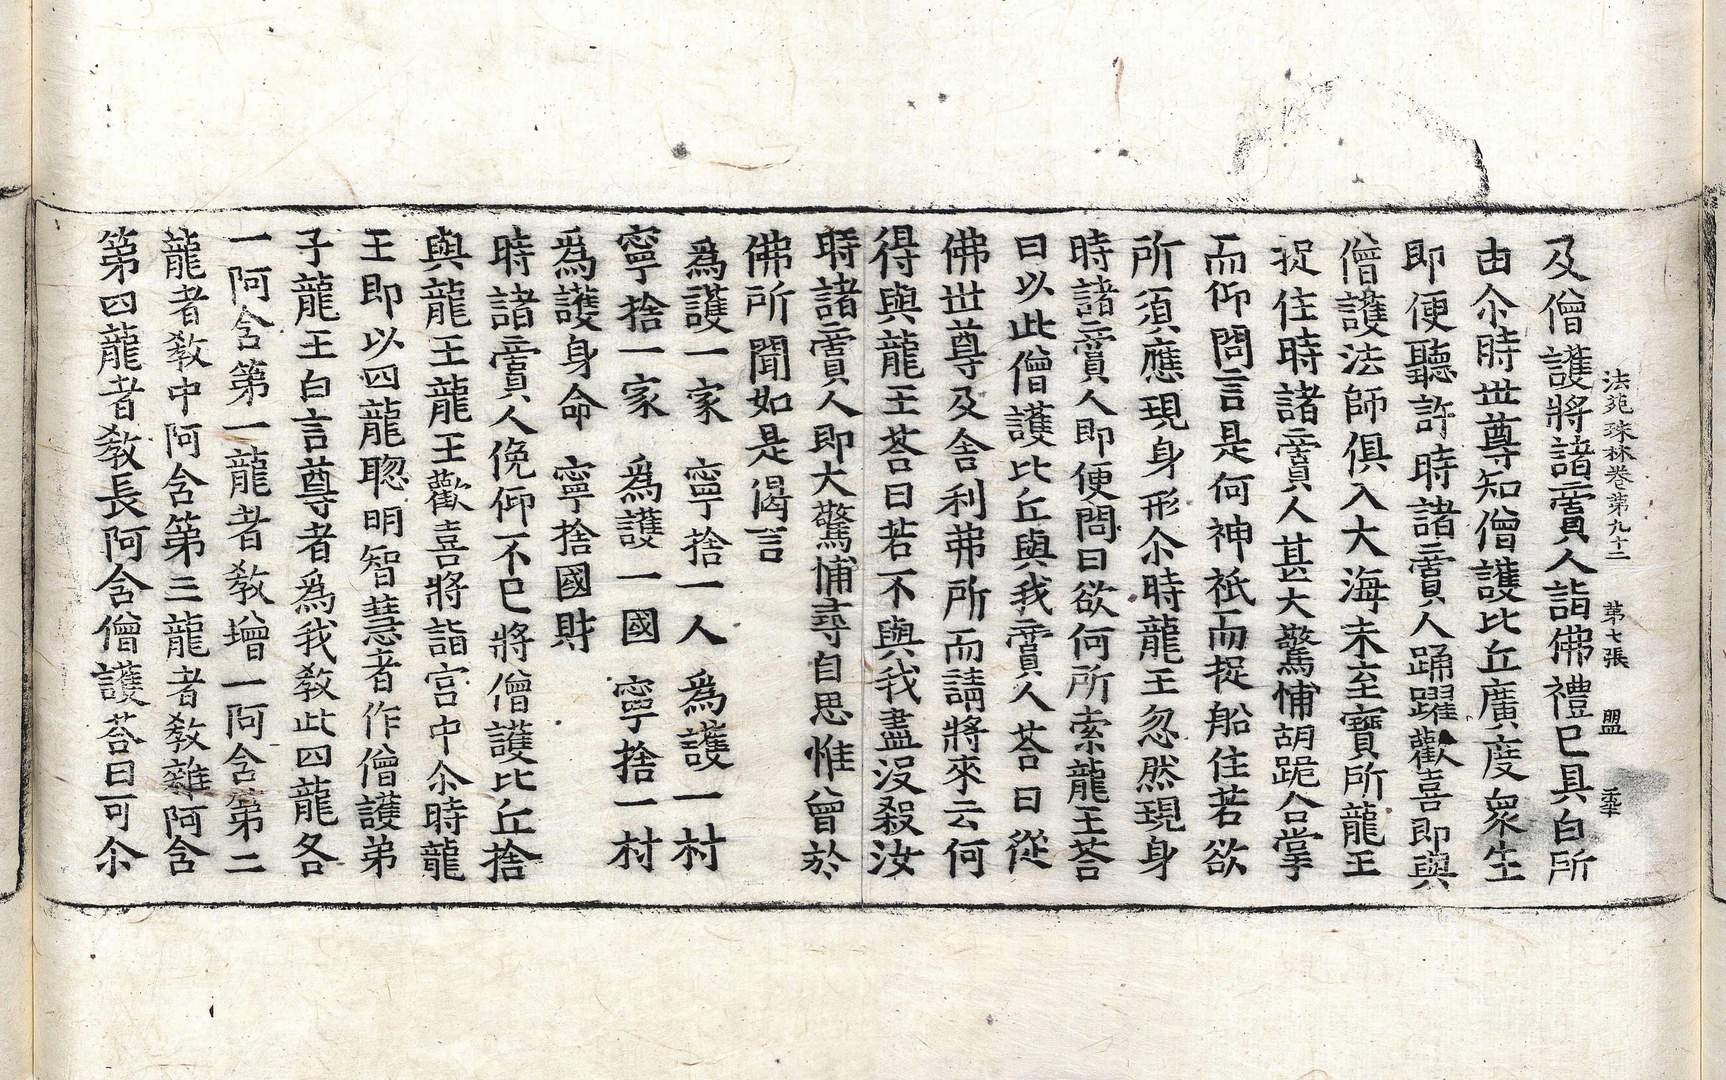 法苑珠林卷第九十二　第七張　盟
及僧護將諸賣人詣佛禮已具白所
由尒時世尊知僧護比丘廣度衆生
即便聽許時諸賣人踊躍歡喜即與
僧護法師俱入大海未至寶所龍王
捉住時諸賣人甚大驚怖胡跪合掌
而仰問言是何神祇而捉船住若欲
所須應現身形尒時龍王忽然現身
時諸賣人即便問曰欲何所索龍王荅
曰以此僧護比丘與我賣人荅曰從
佛世尊及舍利弗所而請將來云何
得與龍王荅曰若不與我盡没殺汝
時諸賣人即大驚怖尋自思惟曾於
佛所聞如是偈言
爲護一家　寧捨一人　爲護一村
寧捨一家　爲護一國　寧捨一村
爲護身命　寧捨國財
時諸賣人俛仰不已將僧護比丘捨
與龍王龍王歡喜將詣宮中尒時龍
王即以四龍聦明智慧者作僧護弟
子龍王白言尊者爲我敎此四龍各
一阿含第一龍者敎增一阿含第二
龍者敎中阿含第三龍者敎雜阿含
第四龍者敎長阿含僧護荅曰可尒